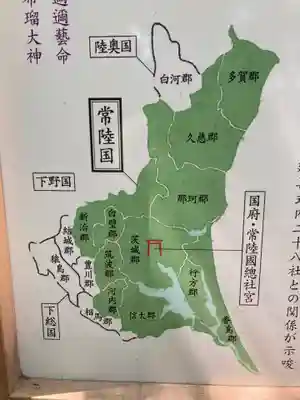 邇邇藝命
瑠大神
陸奥国
白河郡
多賀郡
久慈郡
常陸国
那珂郡
下野国
新治郡
白壁郡
筑波郡
河内郡
茨城郡
行方郡
信太郡
香島郡
結城郡
猿島郡
豊川郡
相馬郡
下総国
国府・常陸國總社宮
二十八社との関係が示唆